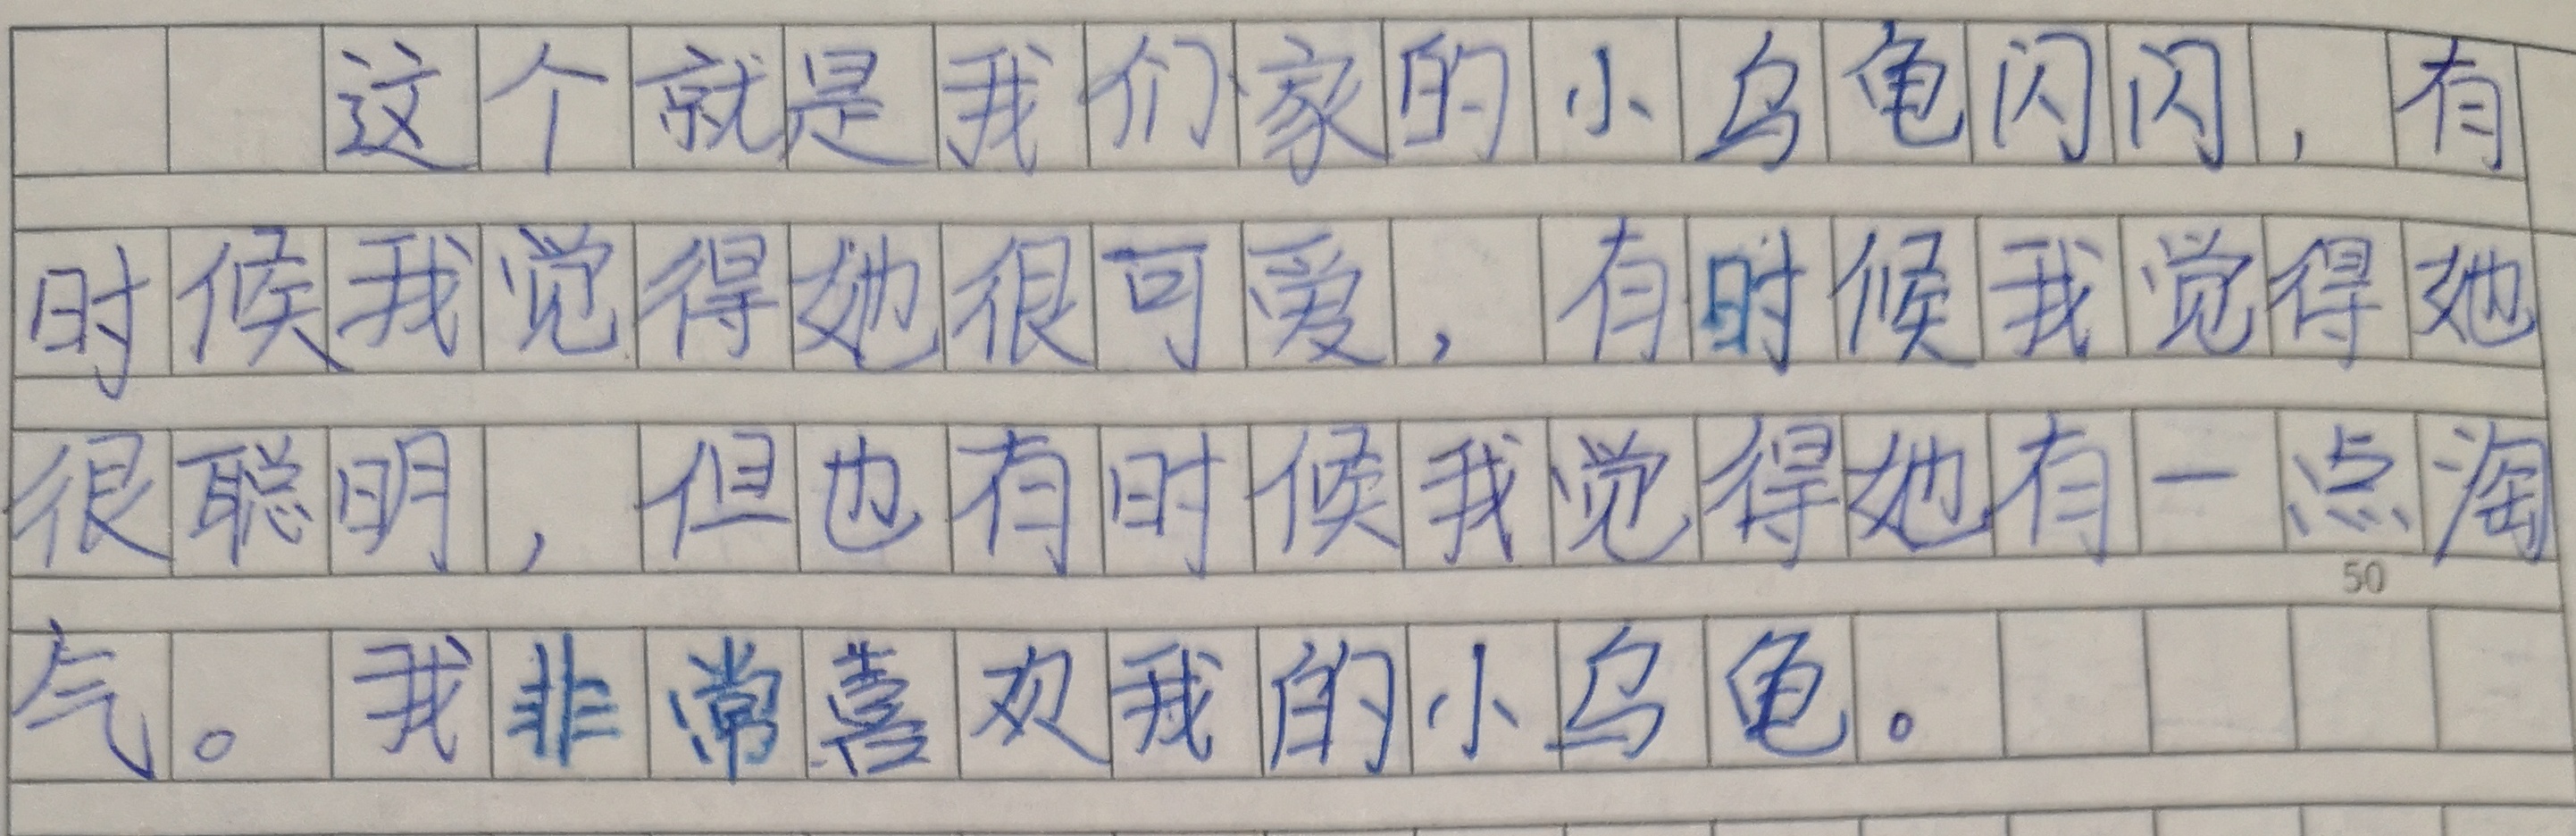 这个就是我们家的小乌龟闪闪，有
时候我觉得她很可爱，有时候我觉得她
很聪明，但也有时候我觉得她有一点淘
50
气。我非常喜欢我的小乌龟。